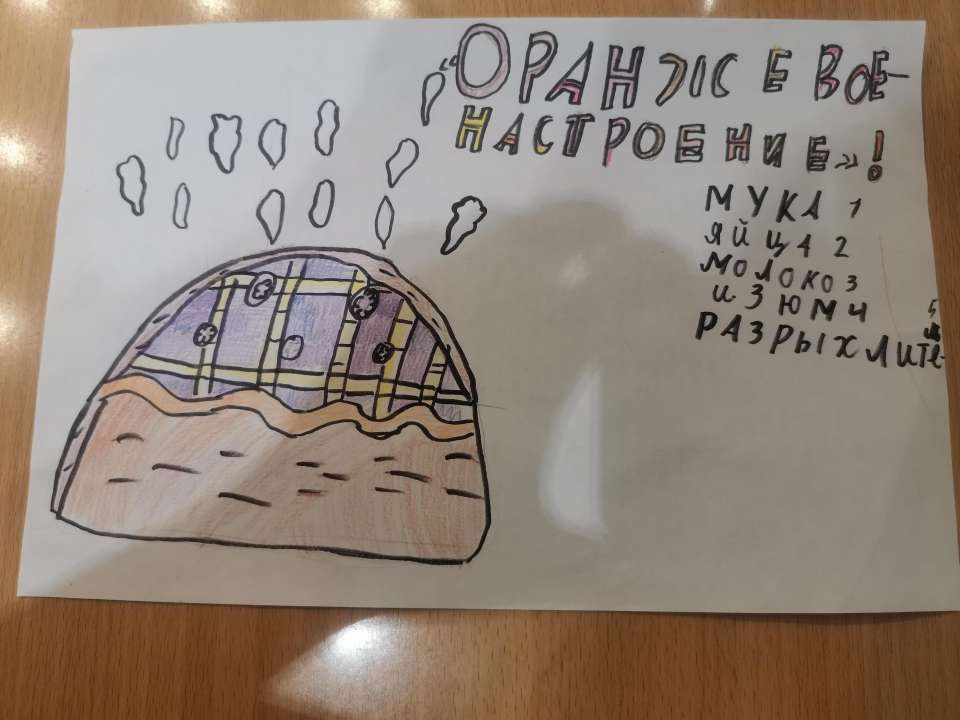 "ОРАНЖЕВОЕ-
НАСТРОЕНИЕ"!
МУКА 1
ЯЙЦА 2
МОЛОКО 3
ИЗЮМ 4
РАЗРЫХЛИТЕ-
ЛЬ 5